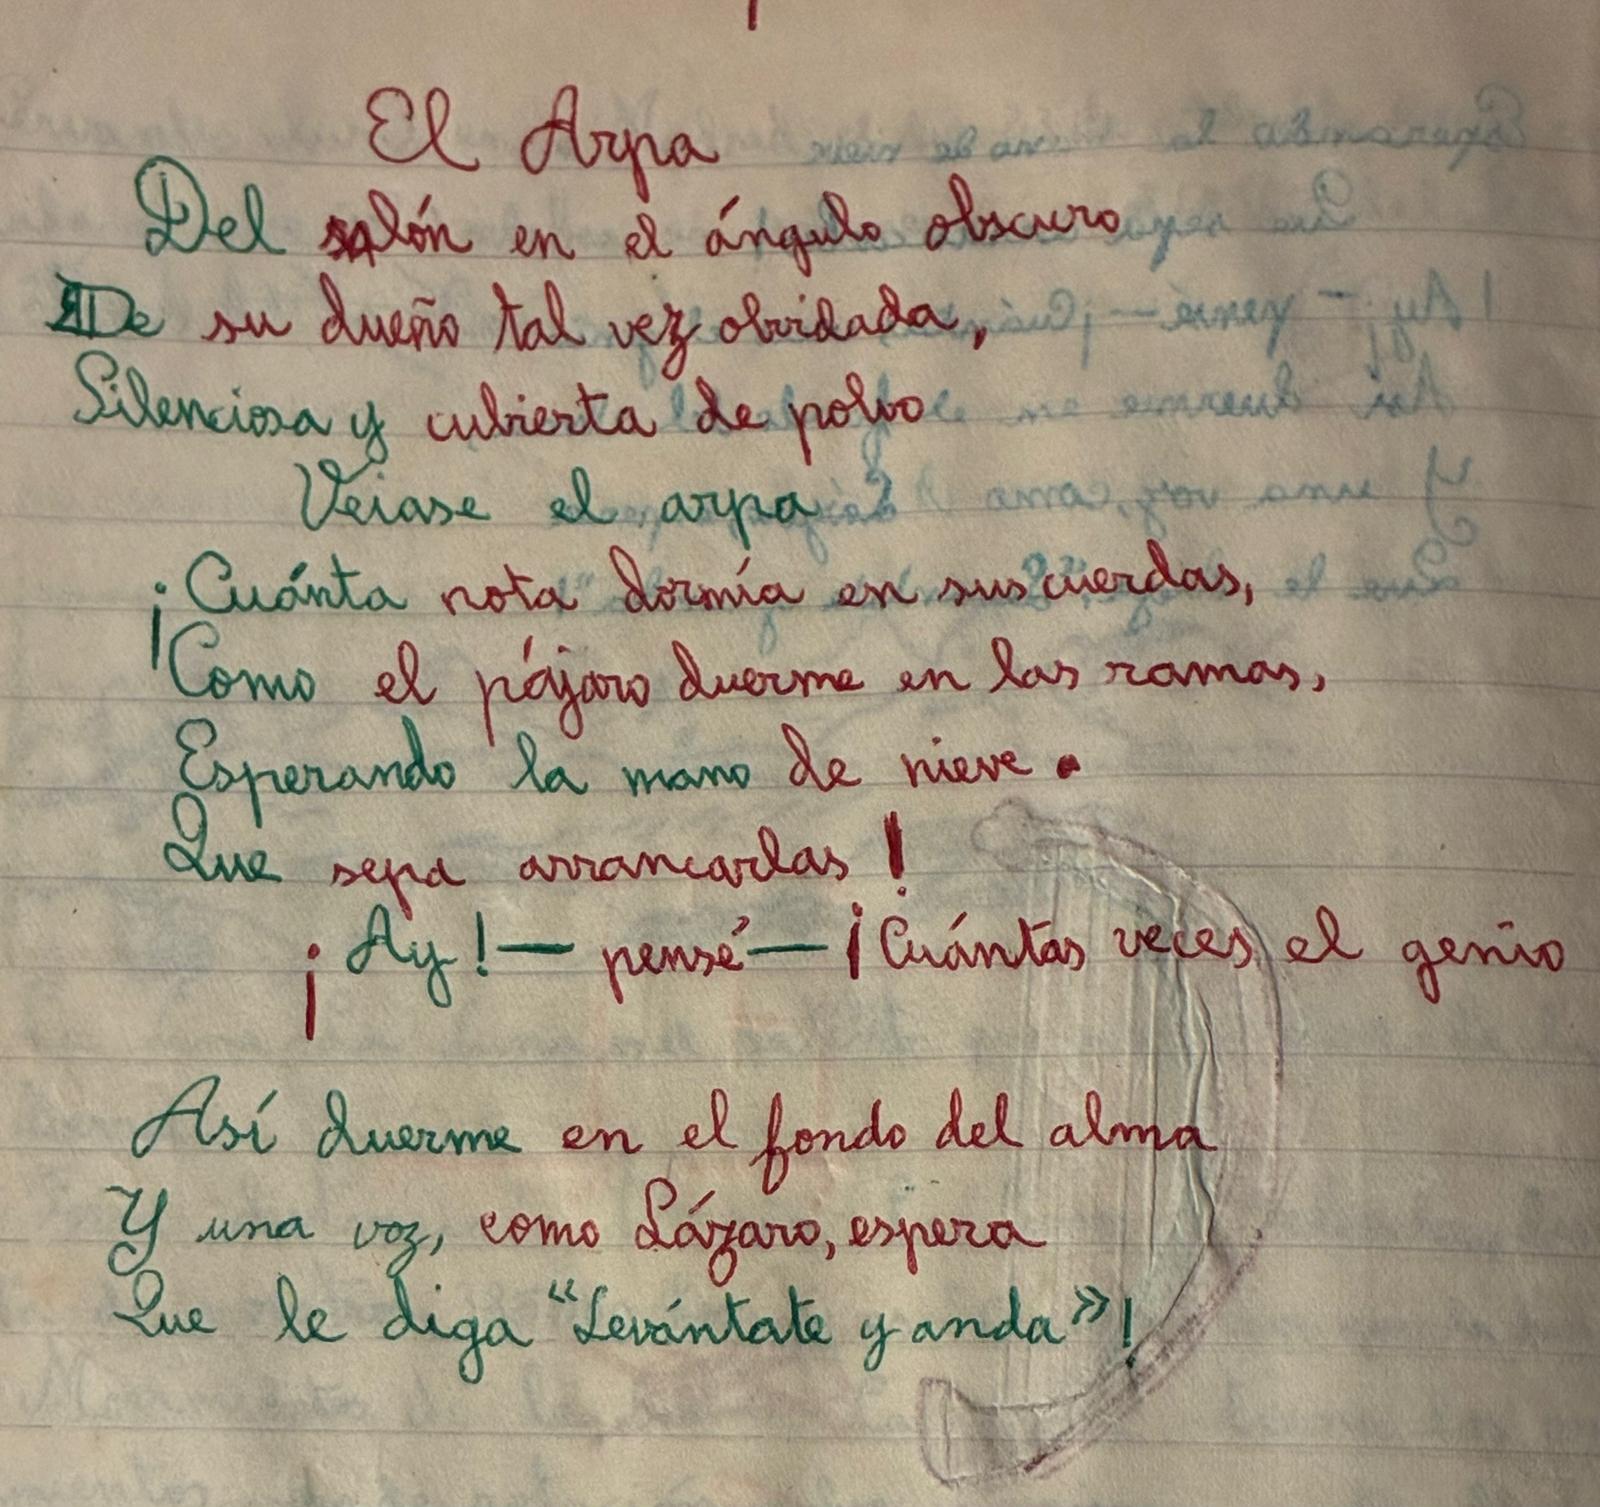 El Arpa
Del salón en el ángulo obscuro
De su dueño tal vez olvidada,
Silenciosa y cubierta de polvo
Veiase el arpa
¡Cuánta nota dormía en sus cuerdas,
¡Como el pájaro duerme en las ramas,
Esperando la mano de nieve.
Que sepa arrancarlas!
¡Ay!— pensé—¡Cuántas veces el genio
Así duerme en el fondo del alma
Y una voz, como Lázaro, espera
Que le diga “Levántate y anda”!